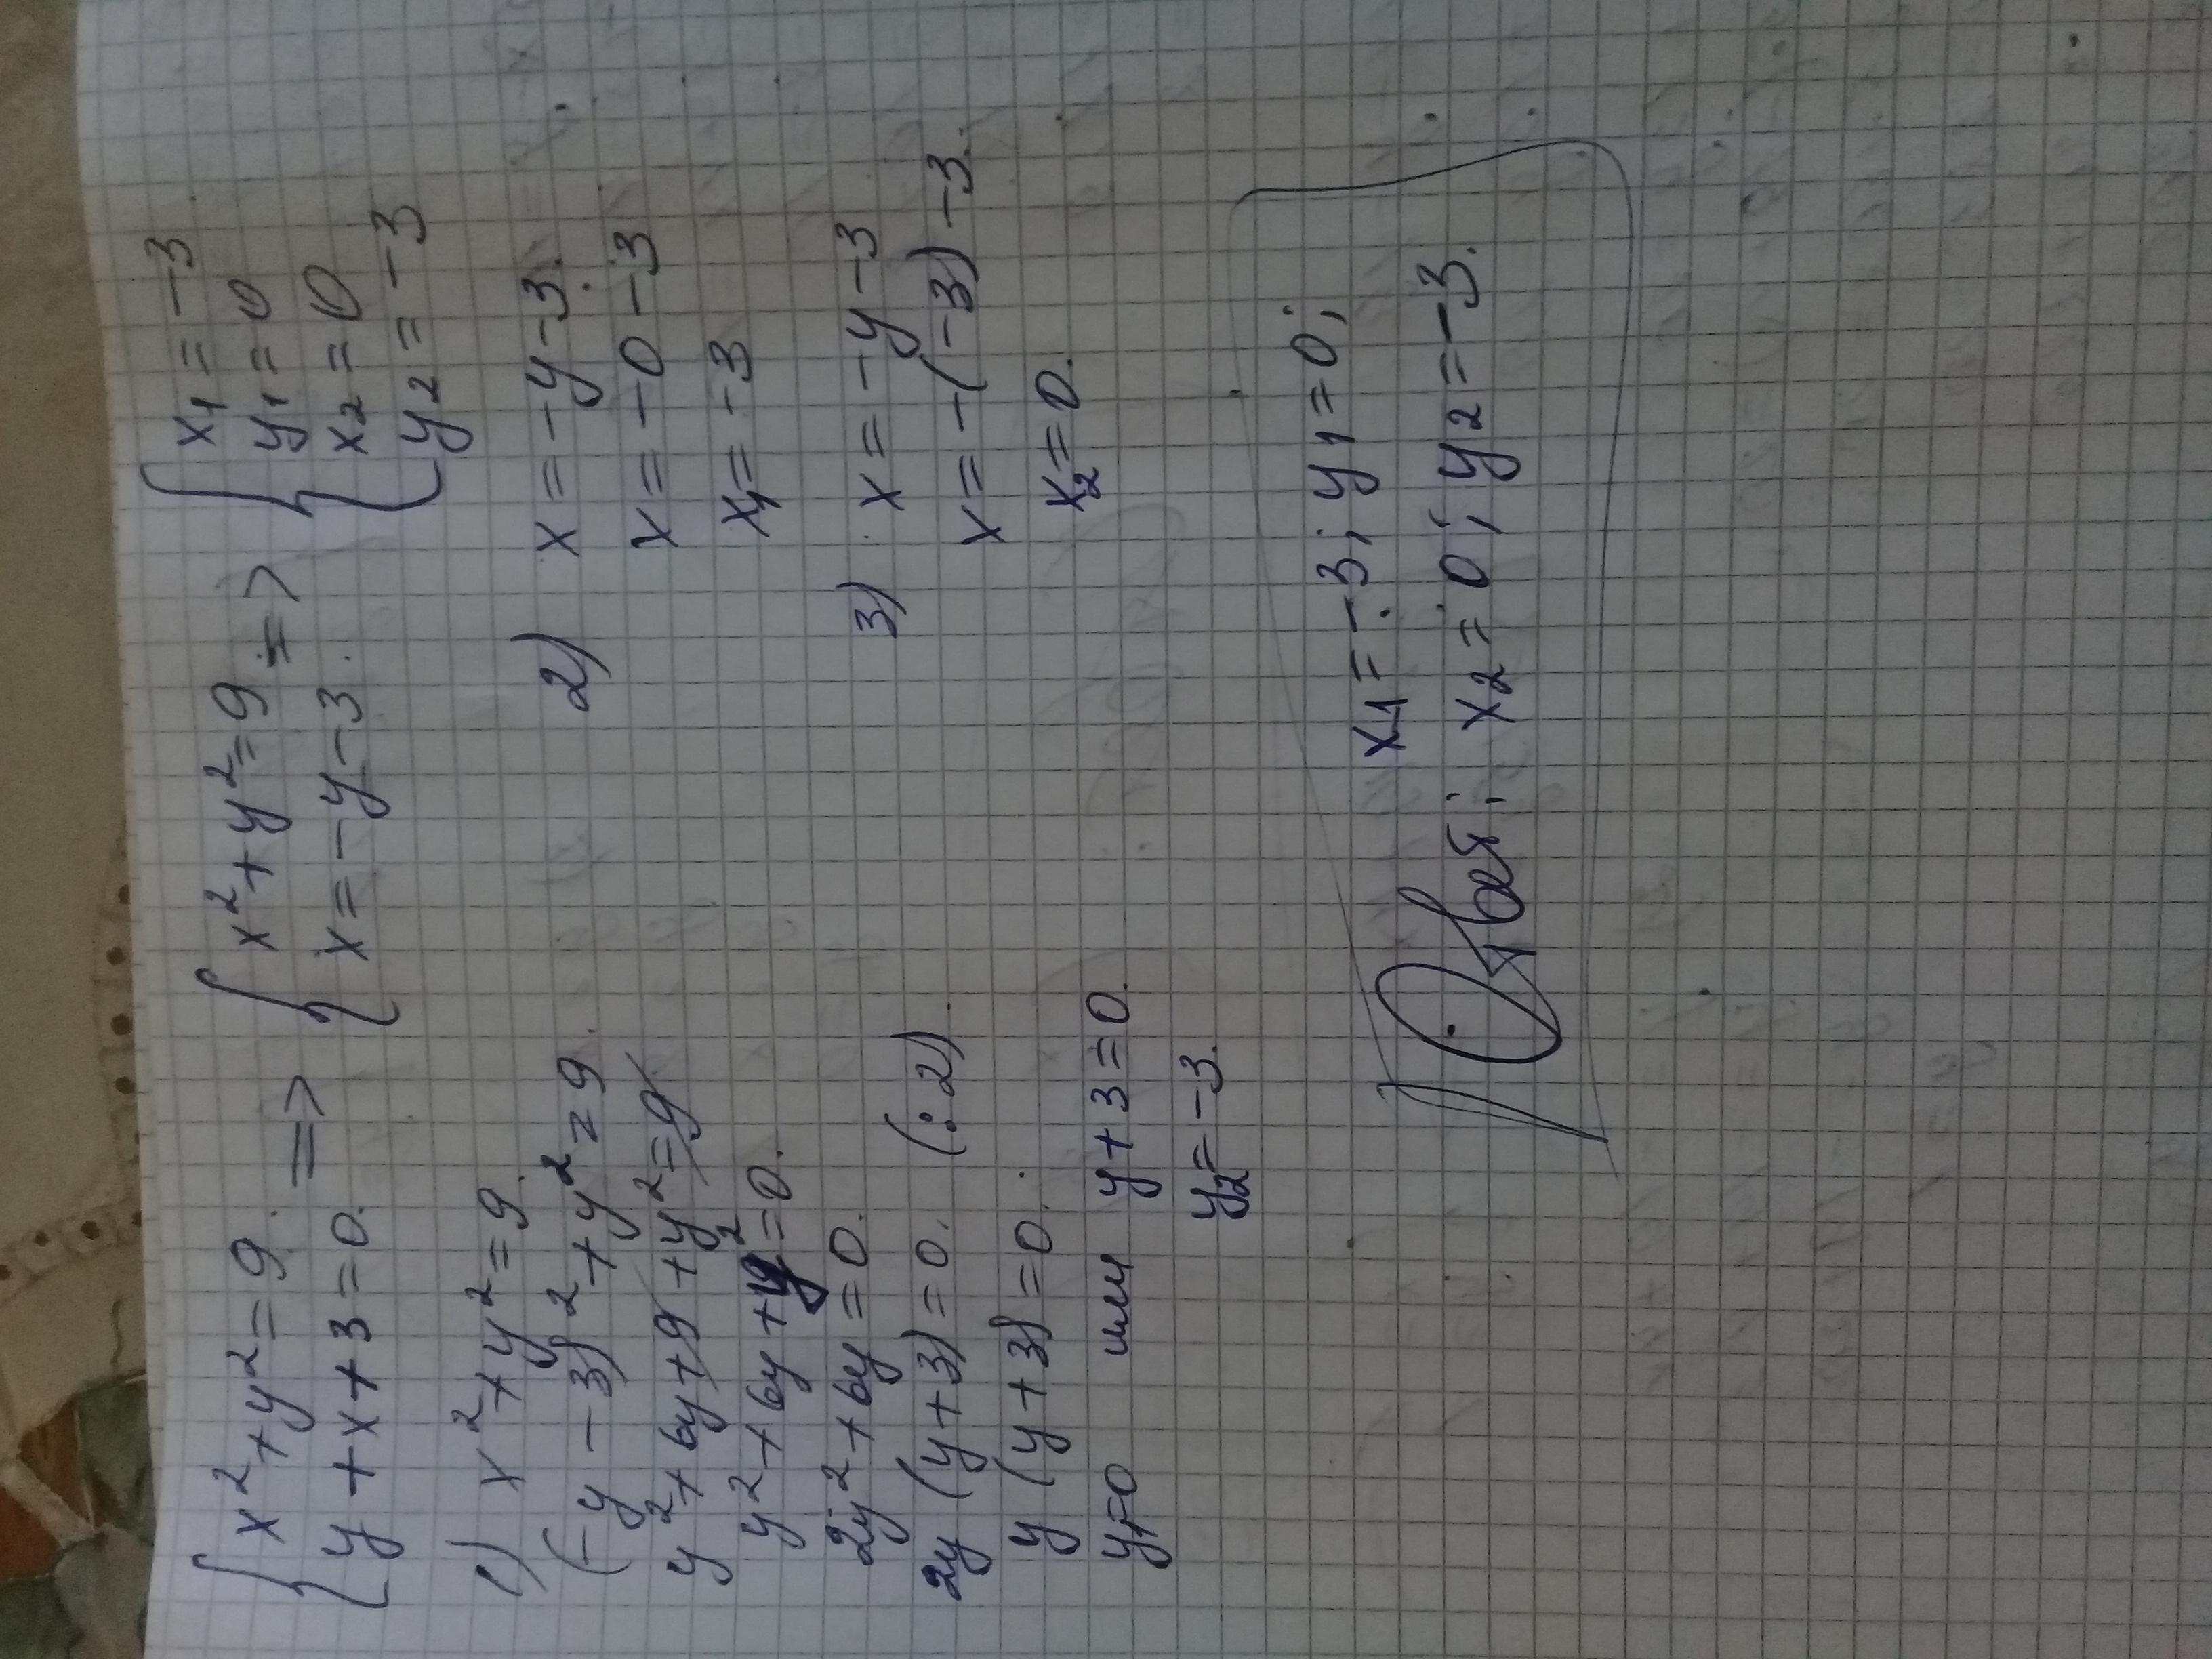 { x² + y² = 9. => { x² + y² = 9 => { x₁ = -3
y + x + 3 = 0. x = -y - 3. y₁ = 0
{ x₂ = 0
y₂ = -3
1) x² + y² = 9.
(-y - 3)² + y² = 9.
y² + 6y + 9 + y² = 9
y² + 6y + y² = 0.
2y² + 6y = 0.
2y (y + 3) = 0. (:2).
y (y + 3) = 0.
y₁=0 или y + 3 = 0.
y₂ = -3.
2) x = -y - 3.
x = -0 - 3
x₁ = -3
3) x = -y - 3
x = -(-3) - 3.
x₂ = 0.
x₁ = -3; y₁ = 0;
Ответ: x₂ = 0; y₂ = -3.